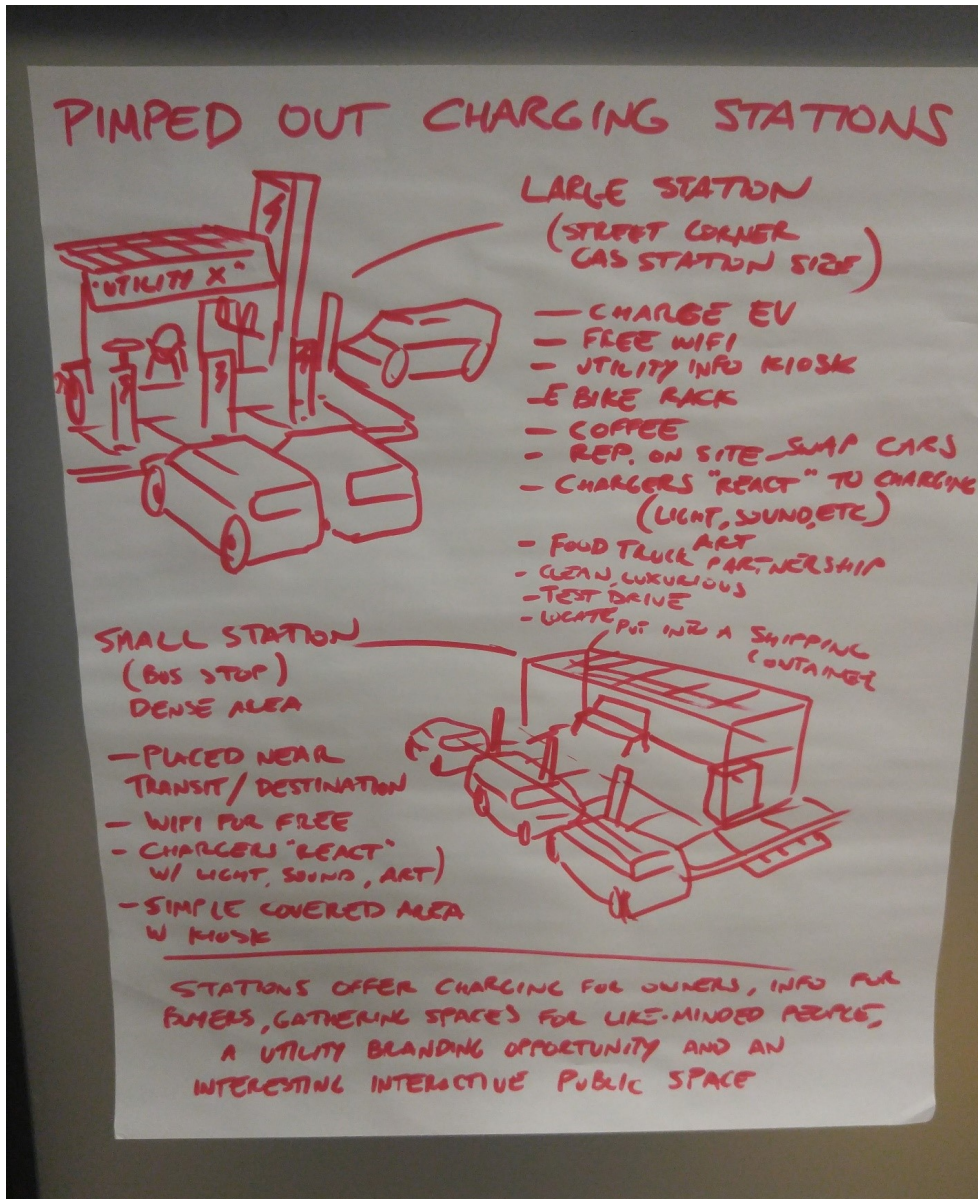 PIMPED OUT CHARGING STATIONS
"UTILITY X"
LARGE STATION
(STREET CORNER
GAS STATION SIZE)
— CHARGE EV
— FREE WIFI
— UTILITY INFO KIOSK
— E BIKE RACK
— COFFEE
- REP. ON SITE - SWAP CARS
- CHARGERS "REACT" TO CHARGING
(LIGHT, SOUND, ETC)
ART
- FOOD TRUCK PARTNERSHIP
- CLEAN, LUXURIOUS
- TEST DRIVE
- LOCATE
PUT INTO A SHIPPING
CONTAINER
SMALL STATION
(BUS STOP)
DENSE AREA
— PLACED NEAR
TRANSIT / DESTINATION
— WIFI FOR FREE
- CHARGERS "REACT"
W/ LIGHT, SOUND, ART)
- SIMPLE COVERED AREA
W KIOSK
STATIONS OFFER CHARGING FOR OWNERS, INFO FOR
BUYERS, GATHERING SPACES FOR LIKE-MINDED PEOPLE,
A UTILITY BRANDING OPPORTUNITY AND AN
INTERESTING INTERACTIVE PUBLIC SPACE